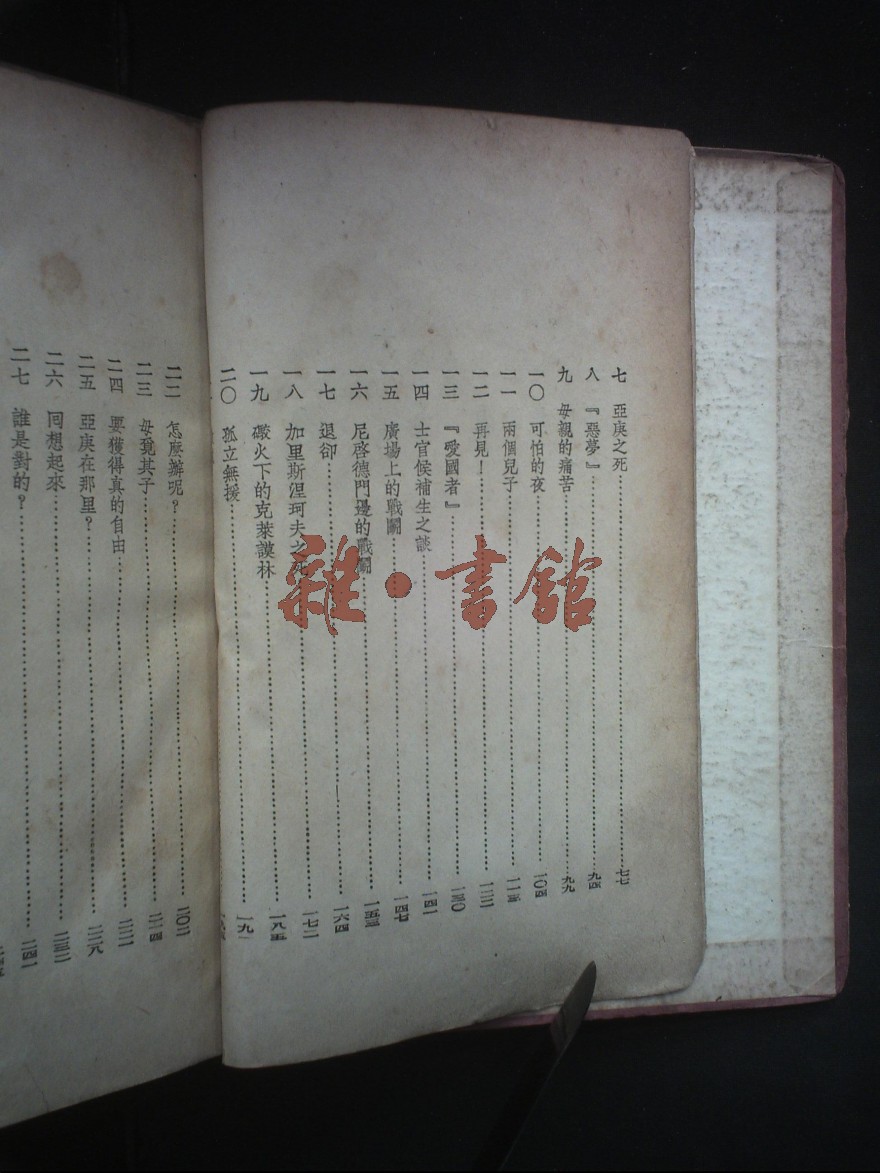 七 亞庚之死 七七
八 『惡夢』 九四
九 母親的痛苦 九九
一〇 可怕的夜 一〇四
一一 兩個兒子 一一三
一二 再見！ 一二二
一三 『愛國者』 一三〇
一四 士官候補生之談 一四一
一五 廣場上的戰鬭 一四七
一六 尼啓德門邊的戰鬭 一五三
一七 退卻 一六四
一八 加里斯涅珂夫之死 一七二
一九 礮火下的克萊謨林 一八五
二〇 孤立無援 一九一
二二 怎麼辦呢？ 二〇二
二三 母覓其子 二一四
二四 要獲得真的自由 二二二
二五 亞庚在那里？ 二二八
二六 回想起來 二三二
二七 誰是對的？ 二四一
雜·書館